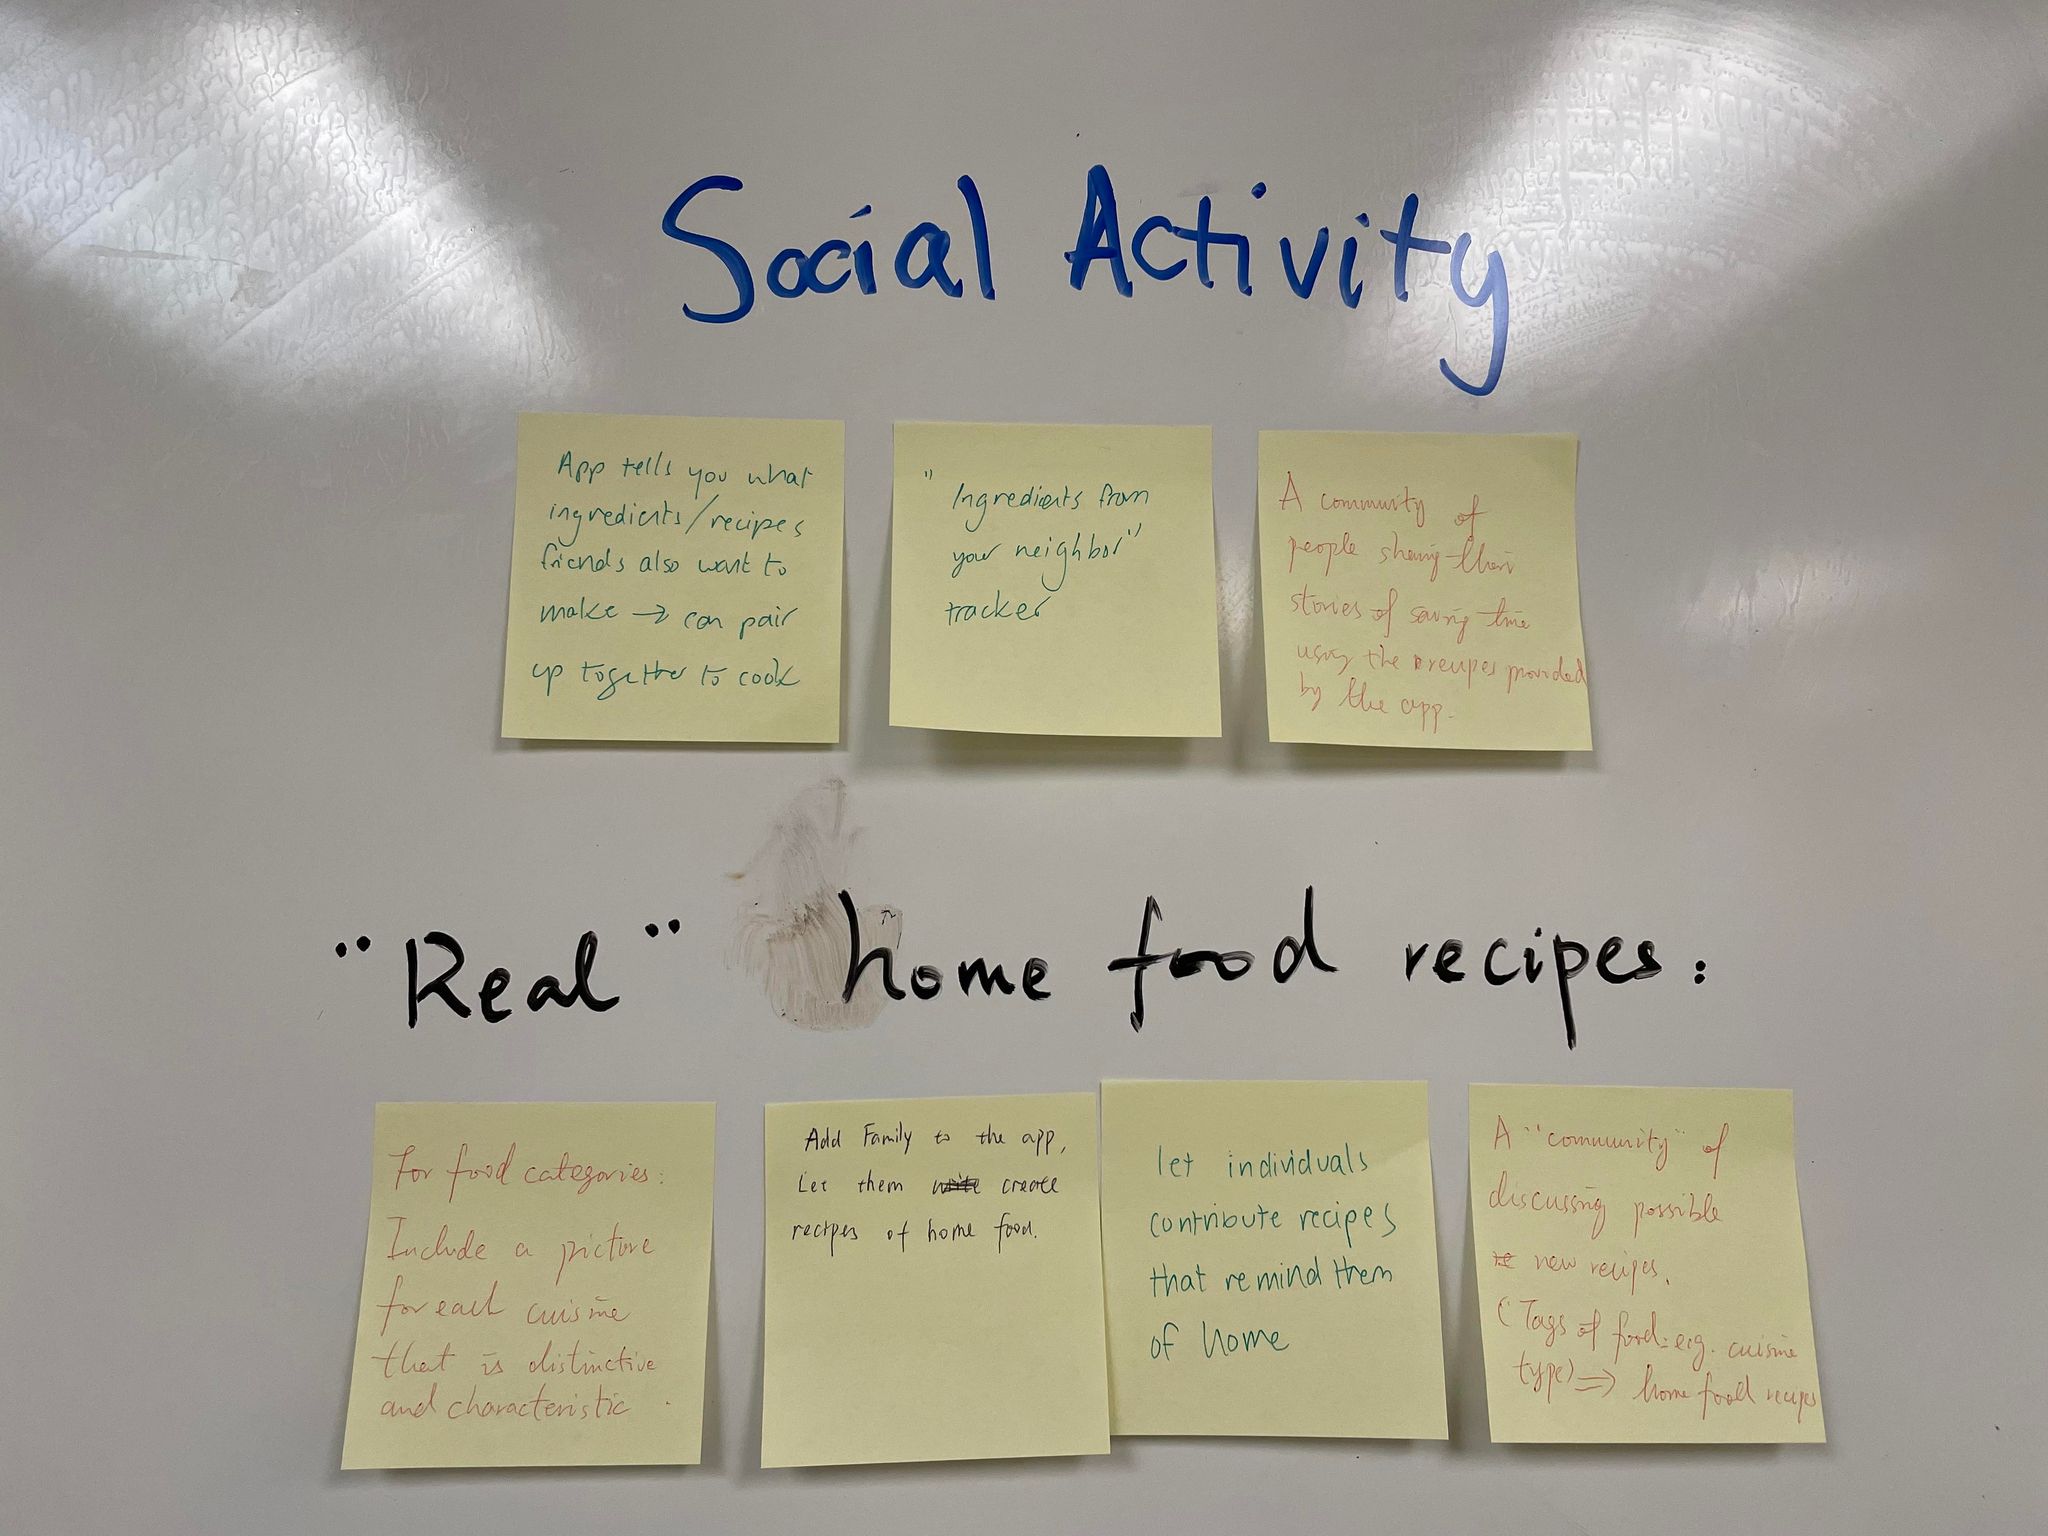 Social Activity
App tells you what
ingredients/recipes
friends also want to
make → can pair
up together to cook
"Ingredients from
your neighbor"
tracker
A community of
people sharing their
stories of saving time
using the recipes provided
by the app.
"Real" home food recipes:
For food categories:
Include a picture
for each cuisine
that is distinctive
and characteristic.
Add Family to the app,
Let them create
recipes of home food.
let individuals
contribute recipes
that remind them
of home
A "community" of
discussing possible
new recipes.
(Tags of food: e.g. cuisine
type) ⇒ home food recipes